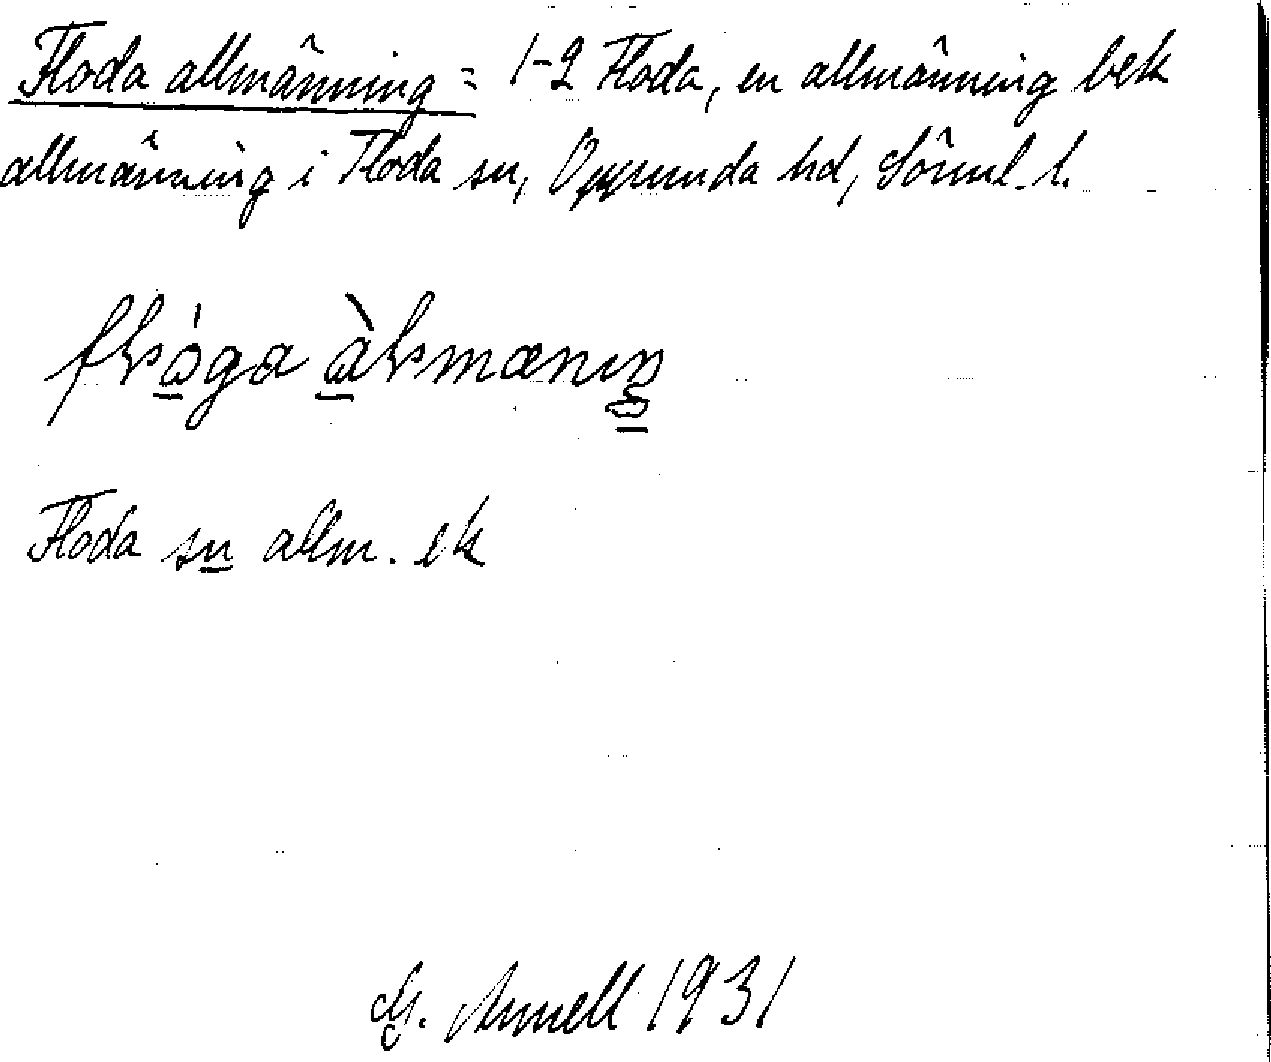 Floda allmänning = 1-2 Floda, en allmänning bek
allmänning i Floda sn, Oppunda hd, Sörml. l.
Floda sn allm. ek
G. Annell 1931